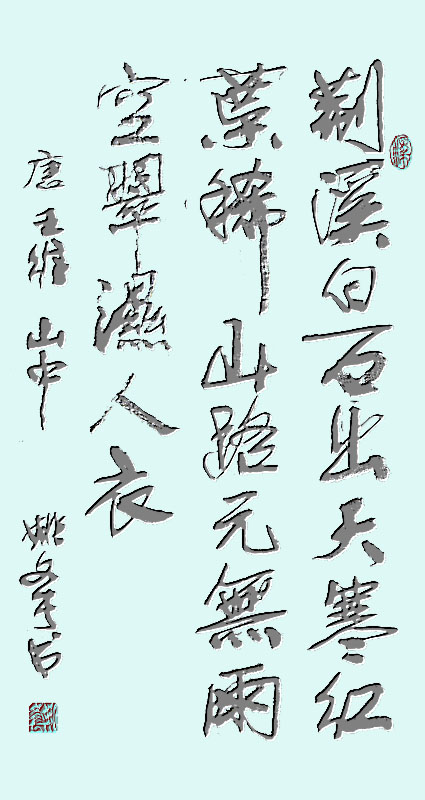 荆溪白石出天寒红
葉稀山路元無雨
空翠濕人衣
唐王維山中
姚